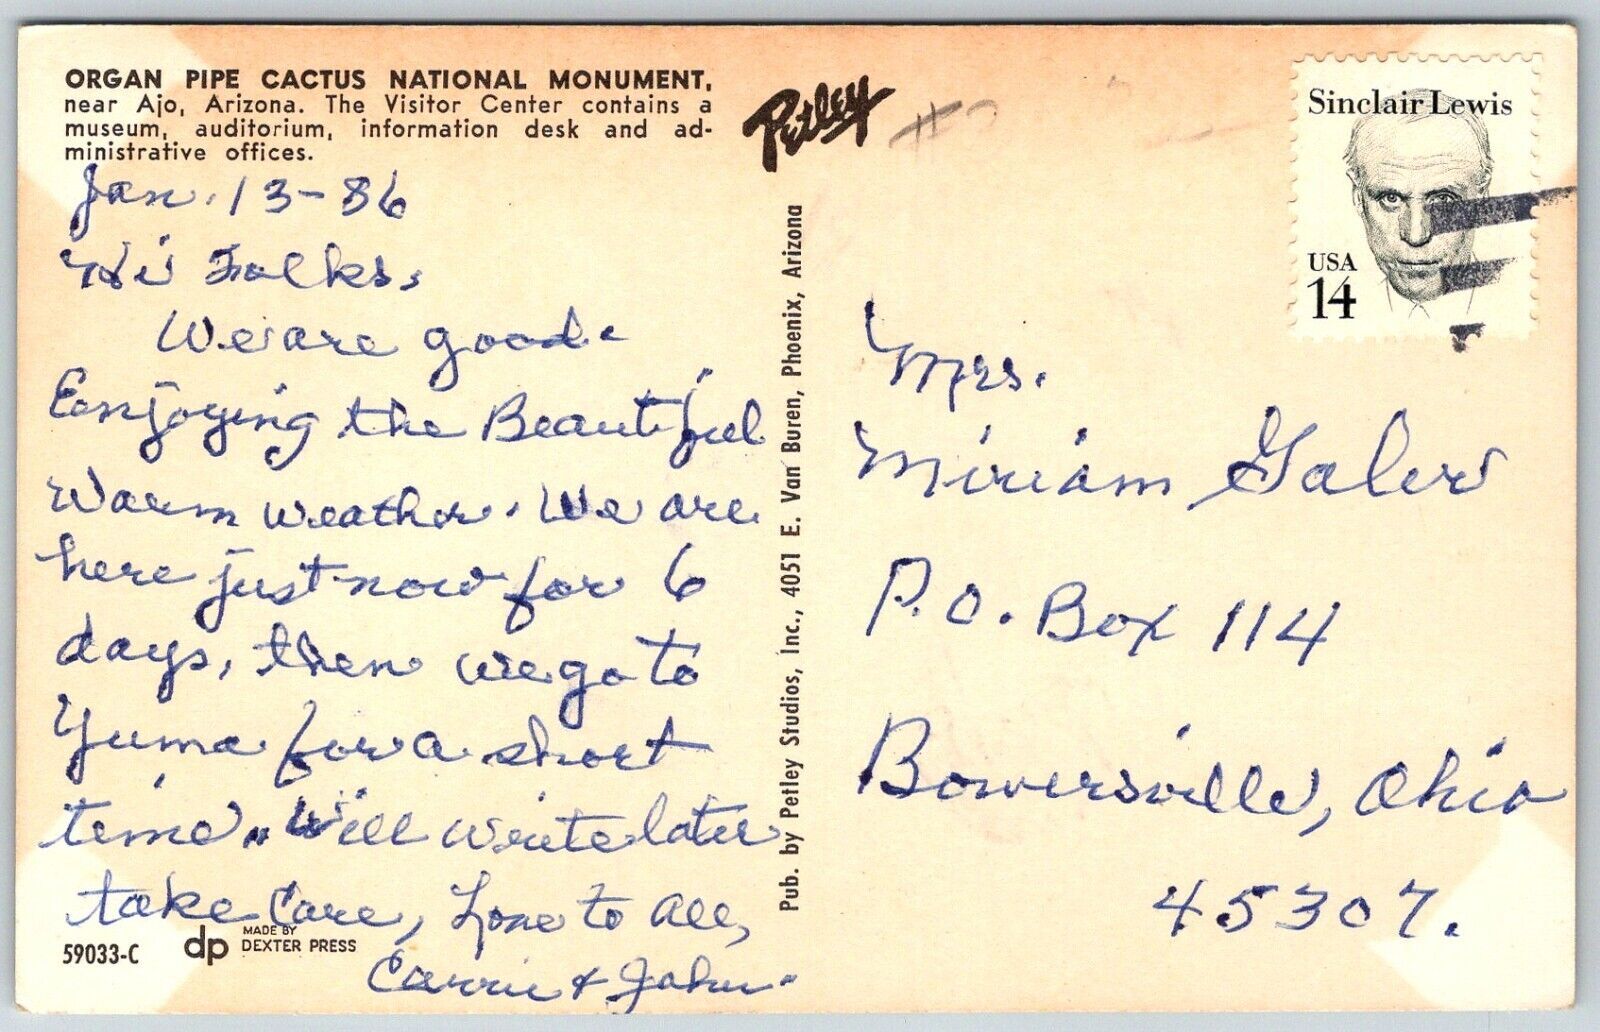 ORGAN PIPE CACTUS NATIONAL MONUMENT,
near Ajo, Arizona. The Visitor Center contains a
museum, auditorium, information desk and ad-
ministrative offices.
Jan. 13-86
Hi Folks,
We are good.
Enjoying the Beautiful
Warm weather. We are
here just now for 6
days, then we go to
Yuma for a short
time. Will write later
take Care, Love to All,
Carrie & John.
59033-C
dp
MADE BY
DEXTER PRESS
Petley
Pub. by Petley Studios, Inc., 4051 E. Van Buren, Phoenix, Arizona
Sinclair Lewis
USA
14
Mrs.
Miriam Galer
P.O. Box 114
Bowersville, Ohio
45307.